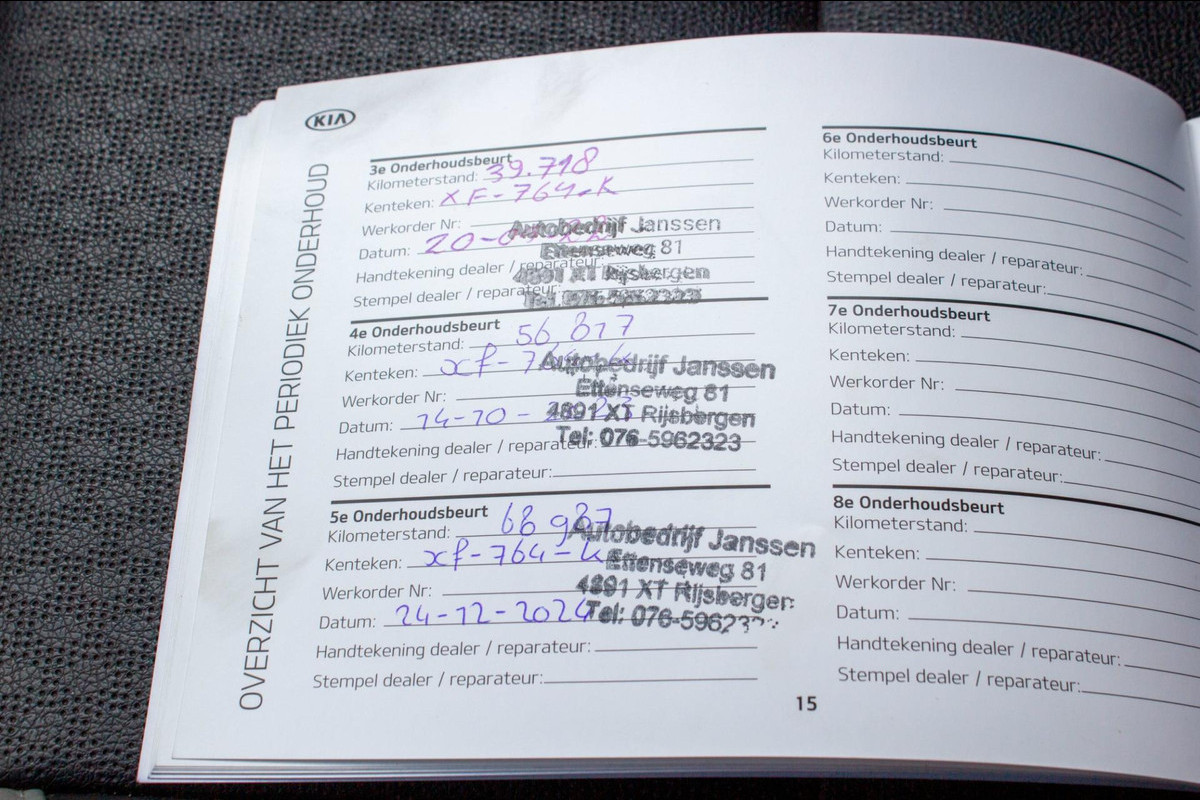 KIA
OVERZICHT VAN HET PERIODIEK ONDERHOUD
3e Onderhoudsbeurt
Kilometerstand: 39.718
Kenteken: XF-764-K
Werkorder Nr:
Datum: 20-
Handtekening dealer / reparateur:
Stempel dealer / reparateur:
Autobedrijf Janssen
Ettenseweg 81
4891 XT Rijsbergen
Tel: 076-5962323
4e Onderhoudsbeurt
Kilometerstand: 56.817
Kenteken: xf-764-k
Werkorder Nr:
Datum: 14-10-
Handtekening dealer / reparateur:
Stempel dealer / reparateur:
Autobedrijf Janssen
Ettenseweg 81
4891 XT Rijsbergen
Tel: 076-5962323
5e Onderhoudsbeurt
Kilometerstand: 68987
Kenteken: xf-764-k
Werkorder Nr:
Datum: 24-12-2024
Handtekening dealer / reparateur:
Stempel dealer / reparateur:
Autobedrijf Janssen
Ettenseweg 81
4891 XT Rijsbergen
Tel: 076-59623
15
6e Onderhoudsbeurt
Kilometerstand:
Kenteken:
Werkorder Nr:
Datum:
Handtekening dealer / reparateur:
Stempel dealer / reparateur:
7e Onderhoudsbeurt
Kilometerstand:
Kenteken:
Werkorder Nr:
Datum:
Handtekening dealer / reparateur:
Stempel dealer / reparateur:
8e Onderhoudsbeurt
Kilometerstand:
Kenteken:
Werkorder Nr:
Datum:
Handtekening dealer / reparateur:
Stempel dealer / reparateur: